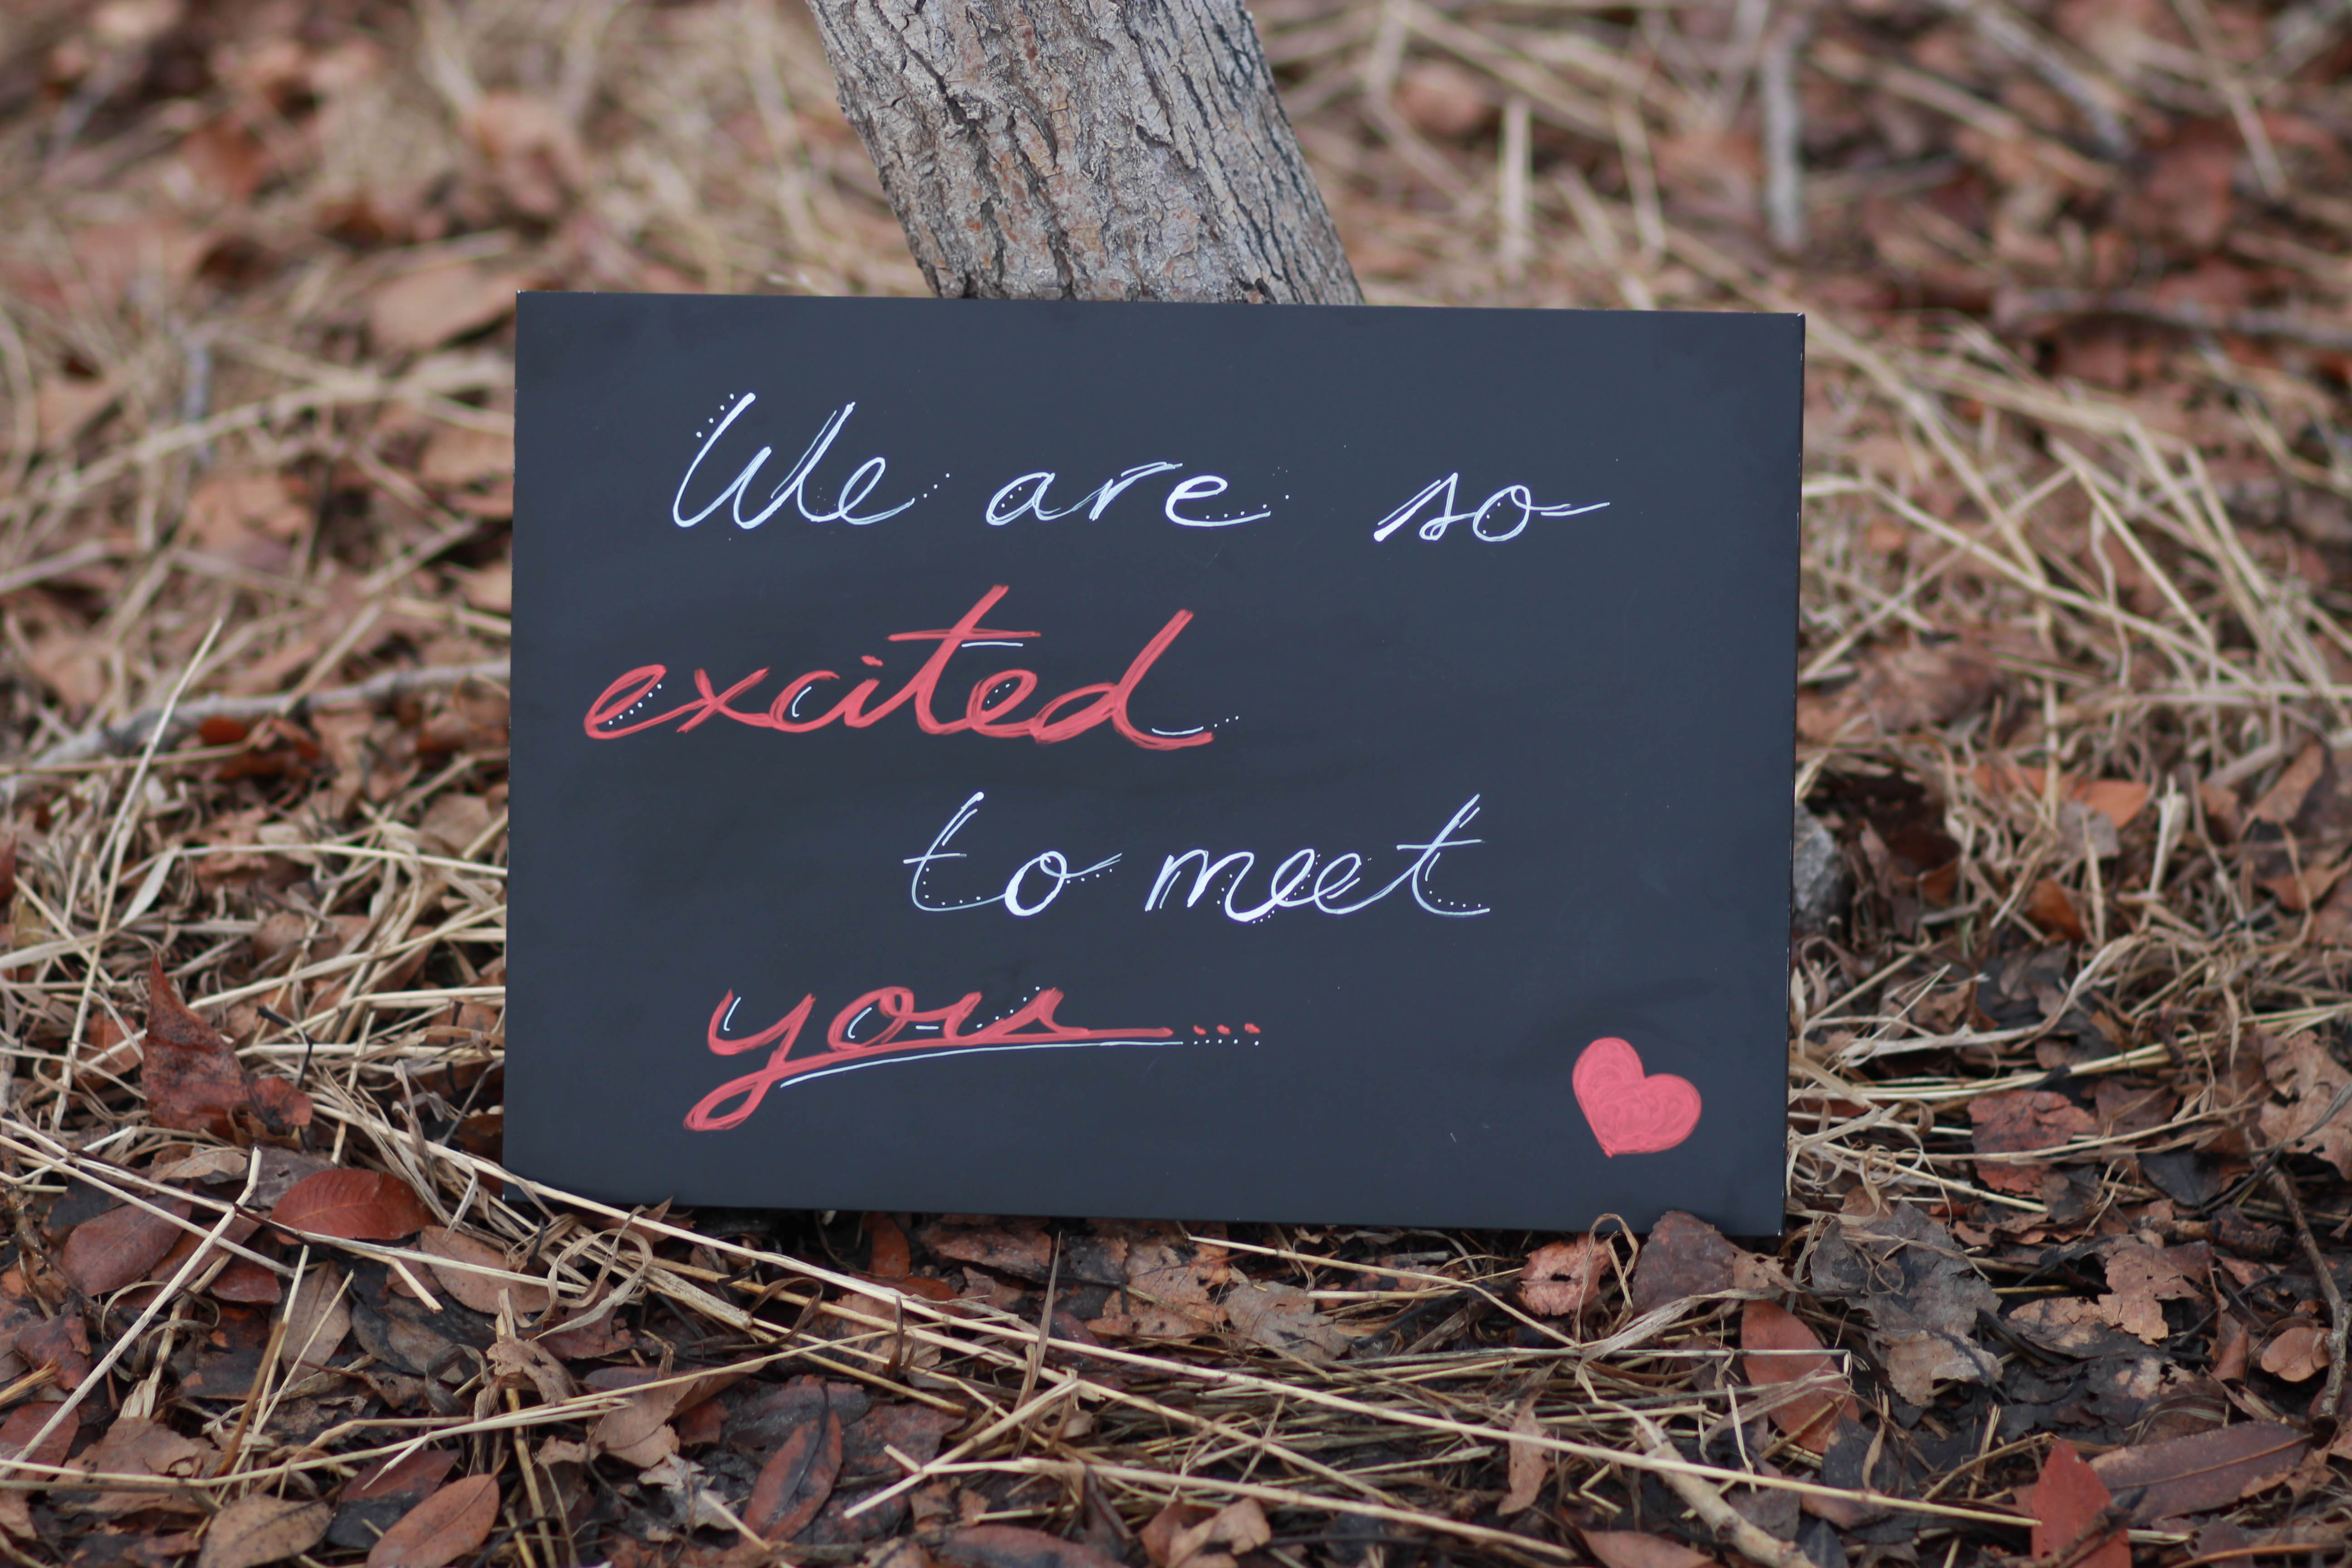 We are so
excited
to meet
you...